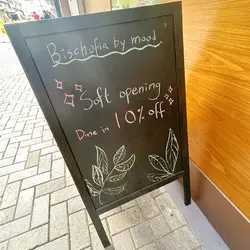 Bischofia by mood
Soft opening
Dine in 10% off